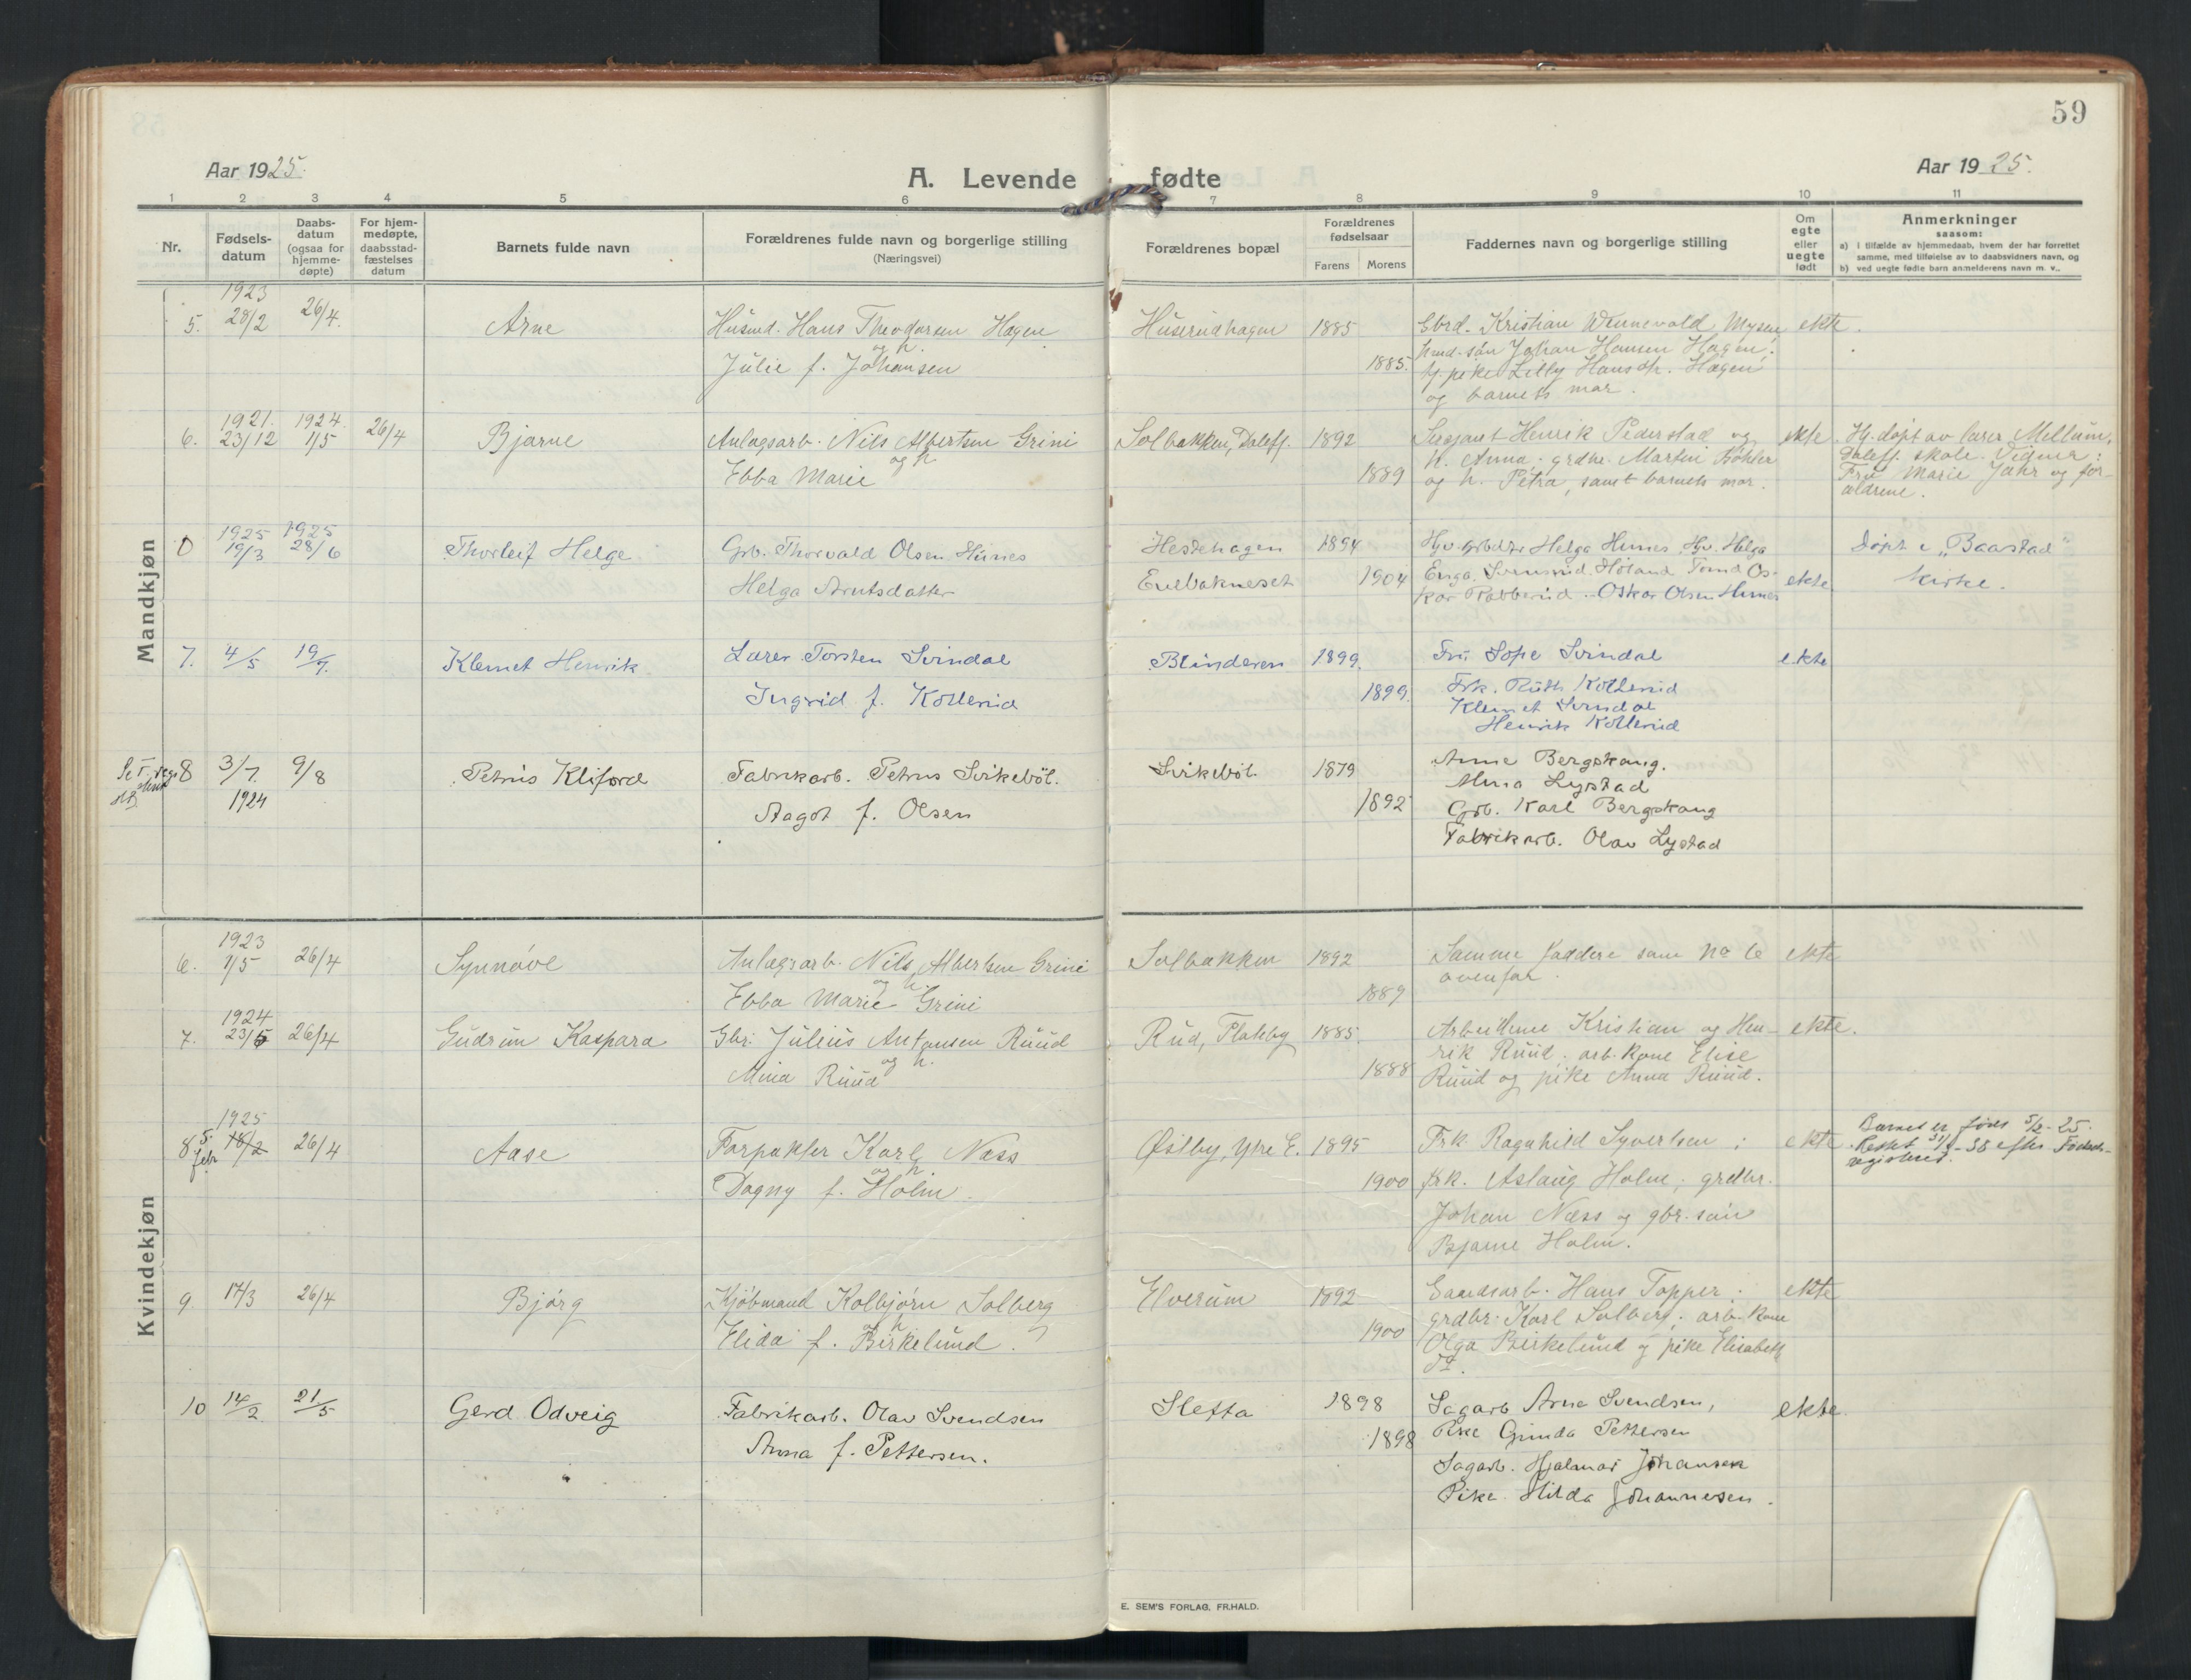 59
Aar 1925.
A. Levende fødte
Aar 1925.
1 2 3 4 5 6 7 8 9 10 11
Nr.
Fødsels-
datum
Daabs-
datum
(ogsaa for
hjemme-
døpte)
For hjem-
medøpte,
daabsstad-
fæstelses
datum
Barnets fulde navn
Forældrenes fulde navn og borgerlige stilling
(Næringsvei)
Forældrenes bopæl
Forældrenes
fødselsaar
Farens Morens
Faddernes navn og borgerlige stilling
Om
egte
eller
uegte
født
Anmerkninger
saasom:
a) i tilfælde av hjemmedaab, hvem der har forrettet
samme, med tilføielse av to daabsvidners navn, og
b) ved uegte fødte barn anmelderens navn m. v..
Mandkjøn
1923
5. 28/2 26/4. Arne Husmd. Hans Theodorsen Hagen
og h.
Julie f. Johansen
Huserudhagen 1885
1885.
Gbrd. Kristian Mysen,
hmd. søn Johan Hansen Hagen,
pike Lilly Hansdr. Hagen
og barnets mor.
ekte.
1921. 1924.
6. 23/12 1/5 26/4 Bjarne Anlægsarb. Nils Albertsen Grini
og h.
Ebba Marie
Solbakken, Dalefj. 1892
1889
Sersjant Henrik Pederstad og
h. Anna. grdbr. Martin Bøhler
og h. Petra, samt barnets mor.
ekte
Hj. døpt av lærer Mellum,
Dalefj. skole. Vidner:
Fru Marie Jahr og for-
ældrene.
1925 1925
0 19/3 28/6 Thorleif Helge Grb. Thorvald Olsen Hunes
Helga Arntsdatter
Hestehagen
Enebakneset
1894
1904
Helga Hunes, Hjv. Helga
Enga. Høland Tømd Os-
kar Rabberud. Oskar Olsen Hunes
ekte.
Døpt i "Baastad"
Kirke.
7. 4/5 19/7. Klemet Henrik Lærer Torsten Svindal
Ingrid f. Kollerud
Blinderen 1899.
1899.
Fru Sofie Svindal
Frk. Ruth Kollerud
Klemet Svindal
Henrik Kollerud
ekte
8 3/7. 9/8
1924
Petrus Kliford Fabrikarb. Petrus Svikebøl.
Aagot f. Olsen
Svikebøl. 1879
1892
Anne Bergskaug.
Anna Lystad
Grb. Karl Bergskaug
Fabrikarb. Olav Lystad
Kvindekjøn
1923
6. 1/5 26/4 Synnøve Anlægsarb. Nils Albertsen Grini
og h.
Ebba Marie Grini
Solbakken 1892
1889
Samme faddere som no 6
ovenfor.
ekte
1924
7. 23/5 26/4 Gudrun Kaspara Gbr. Julius Antonsen Ruud
og h.
Mina Ruud
Rud, Flateby 1885.
1888
Arbeiderne Kristian og Hen-
rik Ruud. arb. kone Elise
Ruud og pike Anna Ruud.
ekte.
1925
8 5. febr 18/2 26/4 Aase Forpakter Karl Næss
og h.
Dagny f. Holm.
Østby, Ytre E. 1895
1900
Frk Ragnhild Syvertsen;
frk. Aslaug Holm; grdbr.
Johan Næss og gbr. søn
Bjarne Holm.
ekte
Barnet er født 5/2-25.
Rettet 31/-38 efter Fødsels-
registeret.
9. 17/3 26/4 Bjørg Kjøbmand Kolbjørn Solberg
og h.
Elida f. Birkelund.
Elverum 1892
1900
Gaardsarb. Hans Topper;
grdbr. Karl Solberg; arb. kone
Olga Birkelund og pike Elisabeth
do.
ekte
10 14/2 21/5 Gerd Odveig Fabrikarb. Olav Svendsen
Anna f. Pettersen.
Sletta 1898
1898
Sagarb Arne Svendsen,
Pike Gunda Pettersen
Sagarb. Hjalmar Johansen
Pike Hilda Johannesen.
ekte.
E. SEM'S FORLAG, FR.HALD.